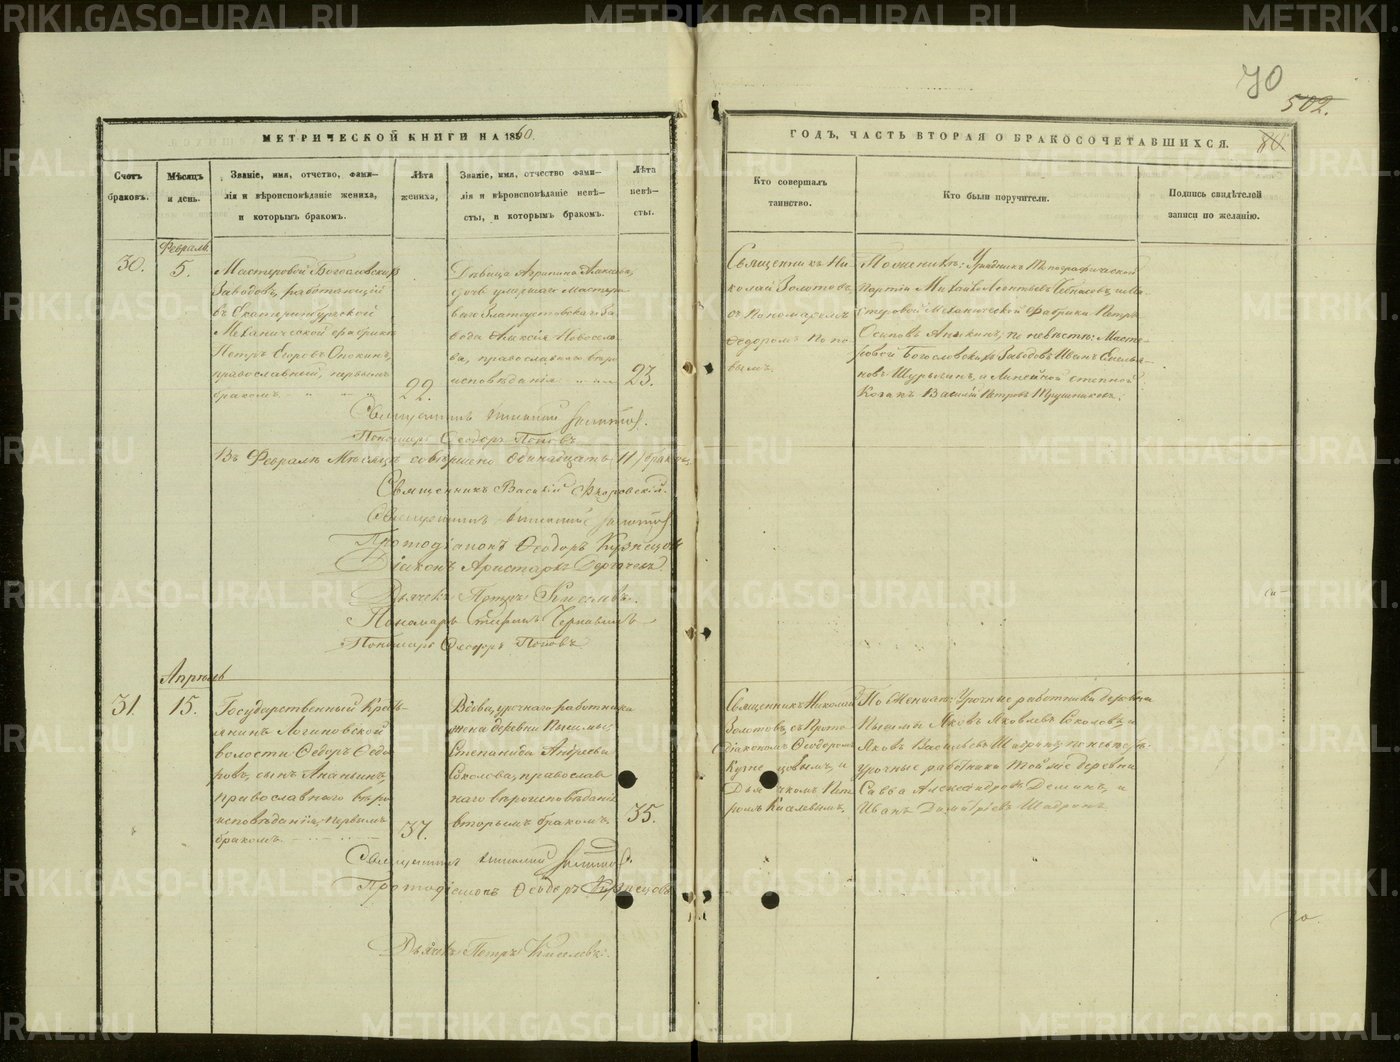 70
502.
МЕТРИЧЕСКОЙ КНИГИ НА 1860.
ГОДЪ, ЧАСТЬ ВТОРАЯ О БРАКОСОЧЕТАВШИХСЯ.
Счетъ браковъ.
Мѣсяцъ и день.
Званіе, имя, отчество, фами—
лія и вѣроисповѣданіе жениха,
и которымъ бракомъ.
Лѣта
жениха,
Званіе, имя, отчество фами—
лія и вѣроисповѣданіе невѣ—
сты, и которымъ бракомъ.
Лѣта
невѣ—
сты.
Кто совершалъ
таинство.
Кто были поручители.
Подпись свидѣтелей
записи по желанію.
Февраль.
30.
5.
Мастеровой Богословскихъ
Заводовъ, работающій
въ Екатеринбургской
Механической фабрикѣ
Петръ Егоровъ
православный, первымъ
бракомъ.
22.
Дѣвица Агрипина Алексѣева,
дочь умершаго Мастеро
ваго Златоустовскаго За
вода Алексія Новосело
ва, православнаго вѣро
исповѣданія
23.
Священникъ Ни
колай Золотовъ,
съ Пономаремъ
Ѳедоромъ Попо
вымъ.
По женихѣ: Урядникъ Топографической
Партіи Михаилъ Леонтьевъ и Ма
стеровой Механической Фабрики Петръ
Осиповъ по невѣстѣ: Масте
ровой Богословскихъ Заводовъ Иванъ Емелья
новъ и Линейной степной
Козакъ Василій Петровъ
Священникъ Николай Золотовъ.
Пономарь Ѳеодоръ Поповъ
Въ Февралѣ Мѣсяцѣ совершено Одинадцать (11) браковъ.
Священникъ Василій
Священникъ Николай Золотовъ.
Протодіаконъ Ѳеодоръ Кузнецовъ
Діаконъ Аристархъ
Дьячекъ Петръ Киселевъ.
Пономарь Стефанъ
Пономарь Ѳеодоръ Поповъ
Апрѣль
31.
15.
Государственный Кресть
янинъ Логиновской
волости Ѳедоръ Ѳедо
ровъ, сынъ Ананьинъ,
православнаго вѣро
исповѣданія, первымъ
бракомъ.
37.
Вдова, урочнаго работника
жена деревни Пышмы,
Степанида Андреева
Соколова, православ
наго вѣроисповѣданія
вторымъ бракомъ.
35.
Священникъ Николай
Золотовъ, съ Прото
діакономъ Ѳеодоромъ
Кузнецовымъ, и
Дьячкомъ Пет
ромъ Киселевымъ.
По женихѣ: Урочные работники деревни
Пышмы Яковъ Яковлевъ Соколовъ, и
Яковъ Васильевъ Шадринъ; по невѣстѣ:
урочные работники той же деревни
Савва Александровъ Деминъ, и
Иванъ Димитріевъ Шадринъ.
Священникъ Николай Золотовъ.
Протодіаконъ Ѳеодоръ Кузнецовъ
Дьячекъ Петръ Киселевъ.
METRIKI.GASO-URAL.RU